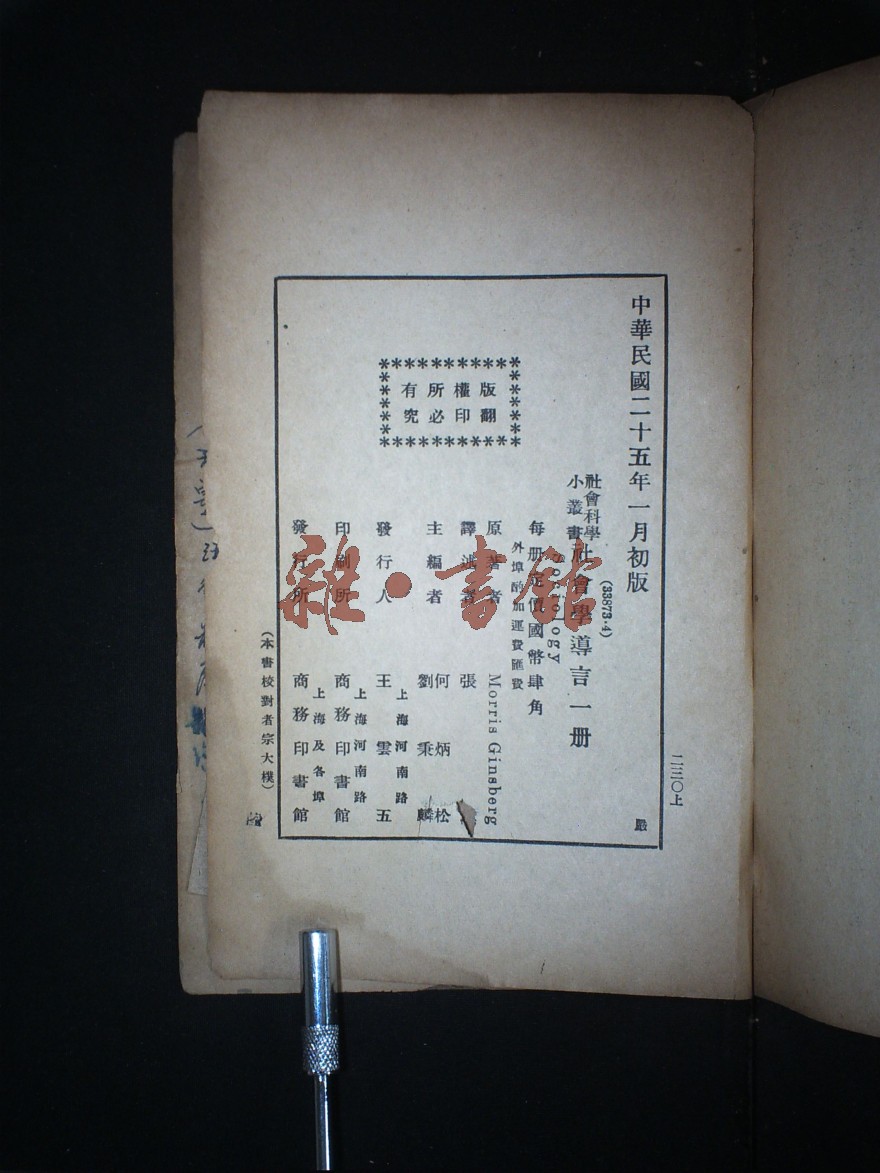 中華民國二十五年一月初版
(33873·4)
社會科學小叢書 社會學導言一册
Sociology
每册定價國幣肆角
外埠酌加運費匯費
版權所有
翻印必究
原著者 Morris Ginsberg
譯述者 張
主編者 何炳松 劉秉麟
發行人 王雲五
上海河南路
印刷所 商務印書館
上海河南路
發行所 商務印書館
上海及各埠
(本書校對者宗大樸)
二三〇上
嚴
雜·書館